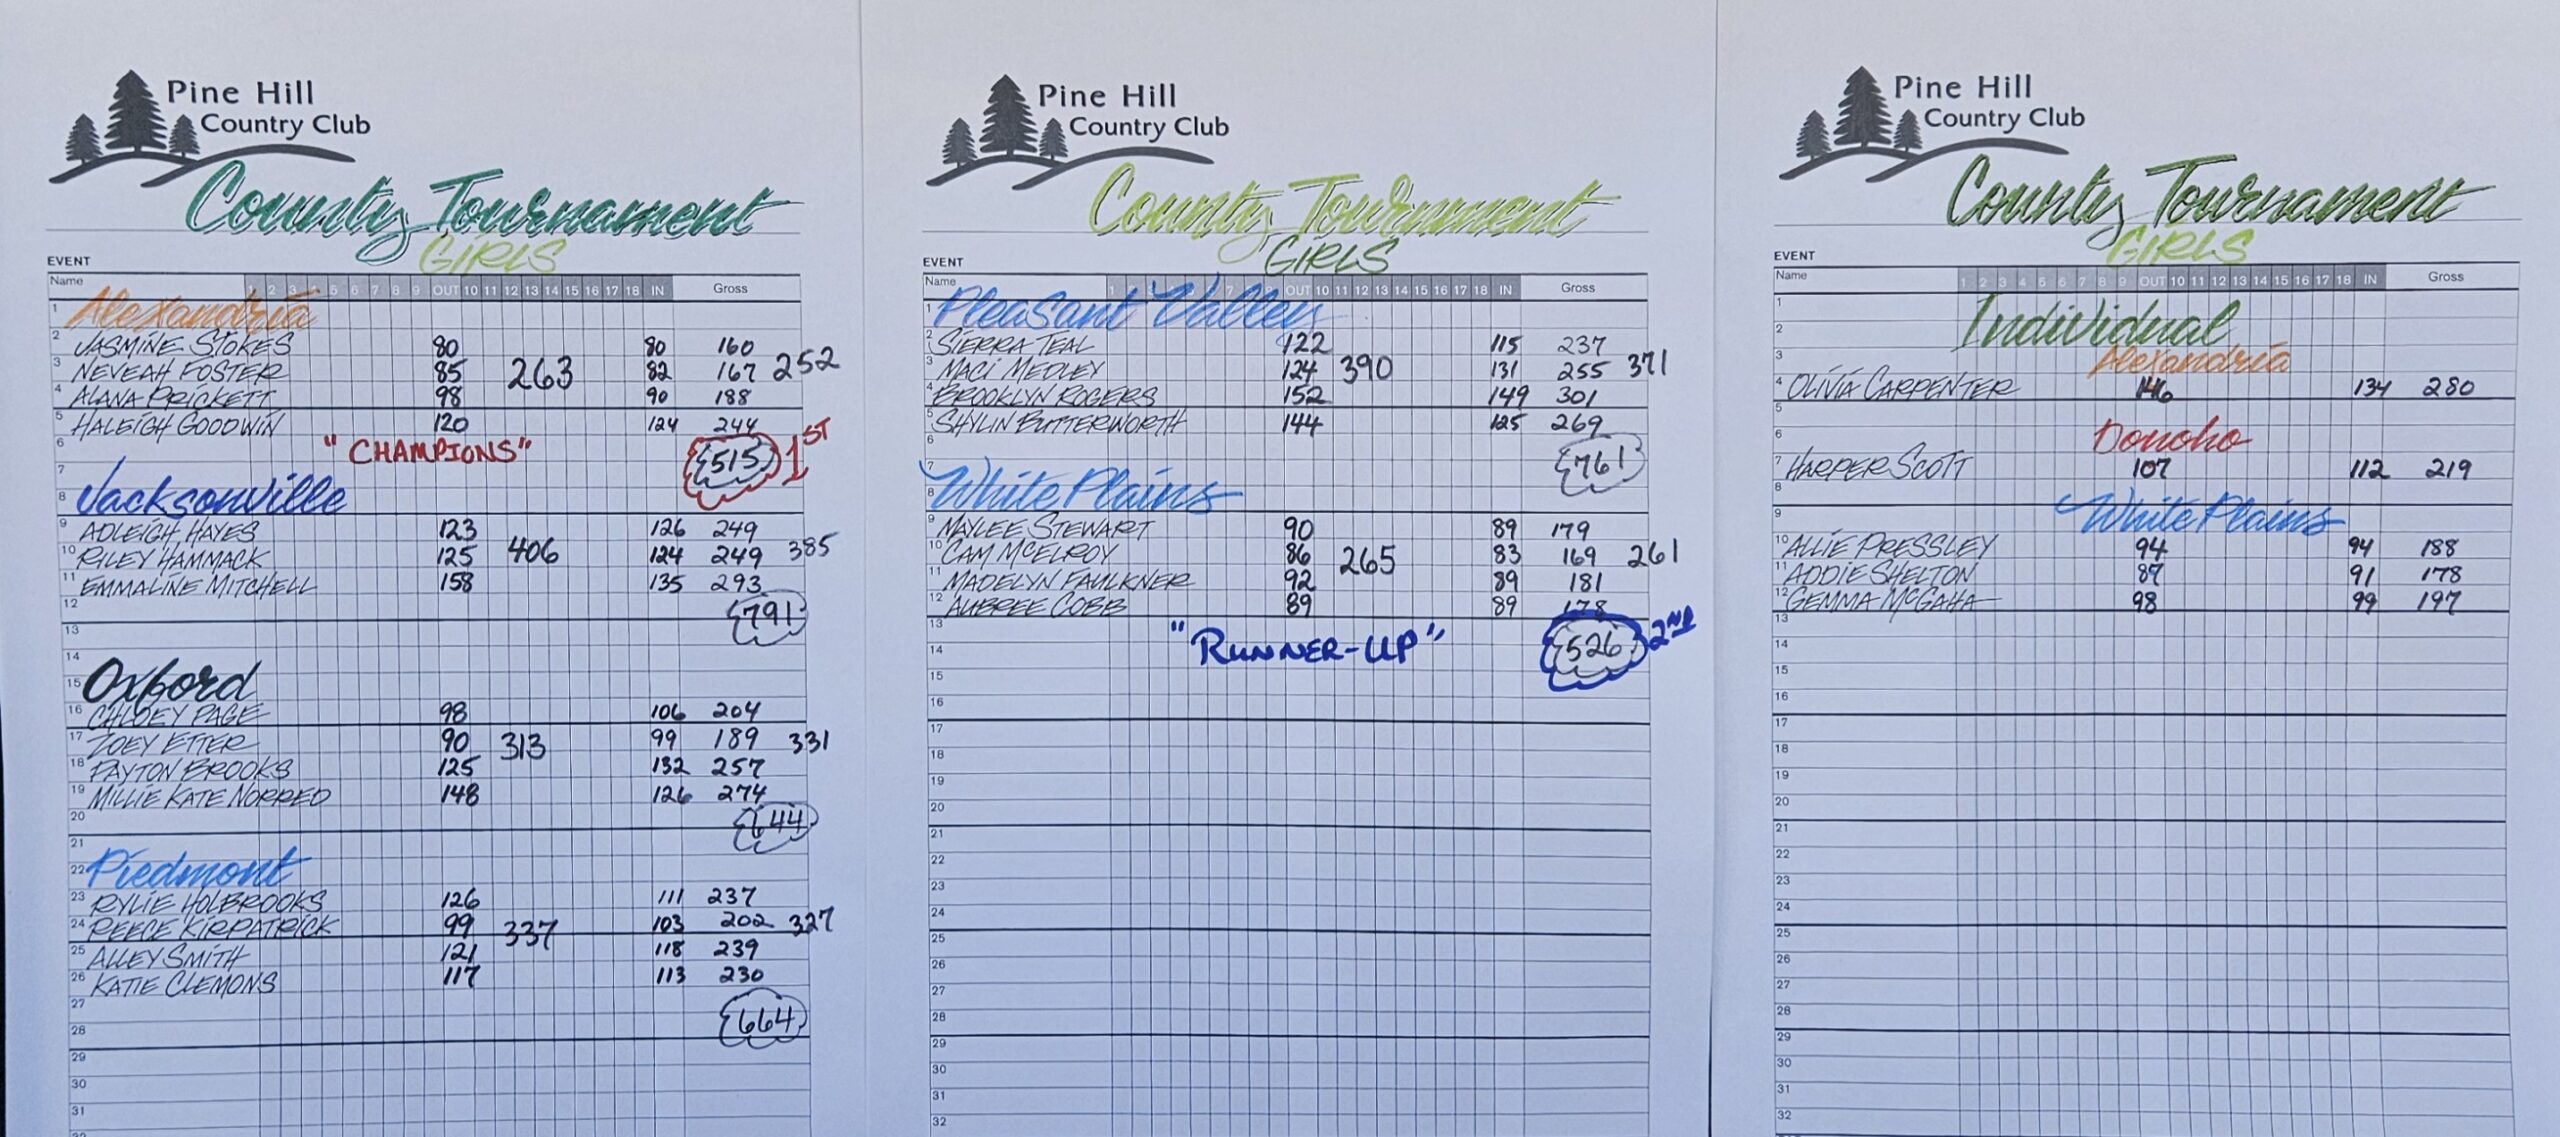 Pine Hill
Country Club
County Tournament
GIRLS
EVENT
Name 1 2 3 4 5 6 7 8 9 OUT 10 11 12 13 14 15 16 17 18 IN Gross
1 Alexandria
2 JASMINE STOKES 80 80 160
3 NEVEAH FOSTER 85 263 82 167 252
4 ALANA PRICKETT 98 90 188
5 HALEIGH GOODWIN 120 124 244
6 "CHAMPIONS" 515 1ST
7
8 Jacksonville
9 ADLEIGH HAYES 123 126 249
10 RILEY HAMMACK 125 406 124 249 385
11 EMMALINE MITCHELL 158 135 293
12 791
13
14
15 Oxford
16 CHLOEY PAGE 98 106 204
17 ZOEY ETTER 90 313 99 189 331
18 PAYTON BROOKS 125 132 257
19 MILLIE KATE NORRED 148 126 274
20 644
21
22 Piedmont
23 RYLIE HOLBROOKS 126 111 237
24 REECE KIRPATRICK 99 337 103 202 327
25 ALLEY SMITH 121 118 239
26 KATIE CLEMONS 117 113 230
27
28 664
29
30
31
Pine Hill
Country Club
County Tournament
GIRLS
EVENT
Name 1 7 8 OUT 10 11 12 13 14 15 16 17 18 IN Gross
1 Pleasant Valley
2 SIERRA TEAL 122 115 237
3 MACI MEDLEY 124 390 131 255 371
4 BROOKLYN ROGERS 152 149 301
5 SHYLIN BUTTERWORTH 144 125 269
6
7 761
8 White Plains
9 MAYLEE STEWART 90 89 179
10 CAM MCELROY 86 265 83 169 261
11 MADELYN FAULKNER 92 89 181
12 AUBREE COBB 89 89 178
13
14 "RUNNER-UP" 526 2ND
15
16
17
18
19
20
21
22
23
24
25
26
27
28
29
30
31
32
Pine Hill
Country Club
County Tournament
GIRLS
EVENT
Name 1 2 3 4 5 6 7 8 9 OUT 10 11 12 13 14 15 16 17 18 IN Gross
1
2 Individual
3 Alexandria
4 OLIVIA CARPENTER 146 134 280
5
6 Donoho
7 HARPER SCOTT 107 112 219
8
9 White Plains
10 ALLIE PRESSLEY 94 94 188
11 ADDIE SHELTON 87 91 178
12 GEMMA MCGAHA 98 99 197
13
14
15
16
17
18
19
20
21
22
23
24
25
26
27
28
29
30
31
32